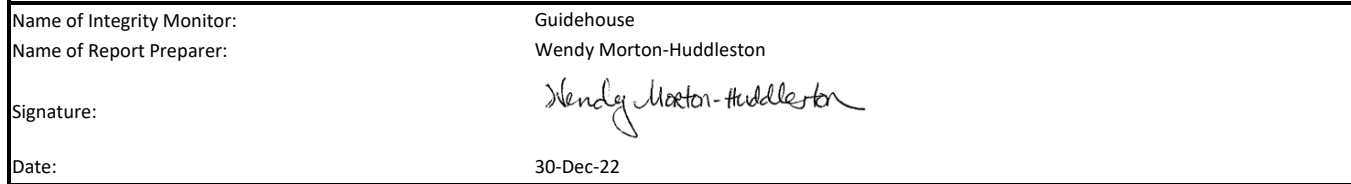 Name of Integrity Monitor: Guidehouse
Name of Report Preparer: Wendy Morton-Huddleston
Signature: Wendy Morton-Huddleston
Date: 30-Dec-22